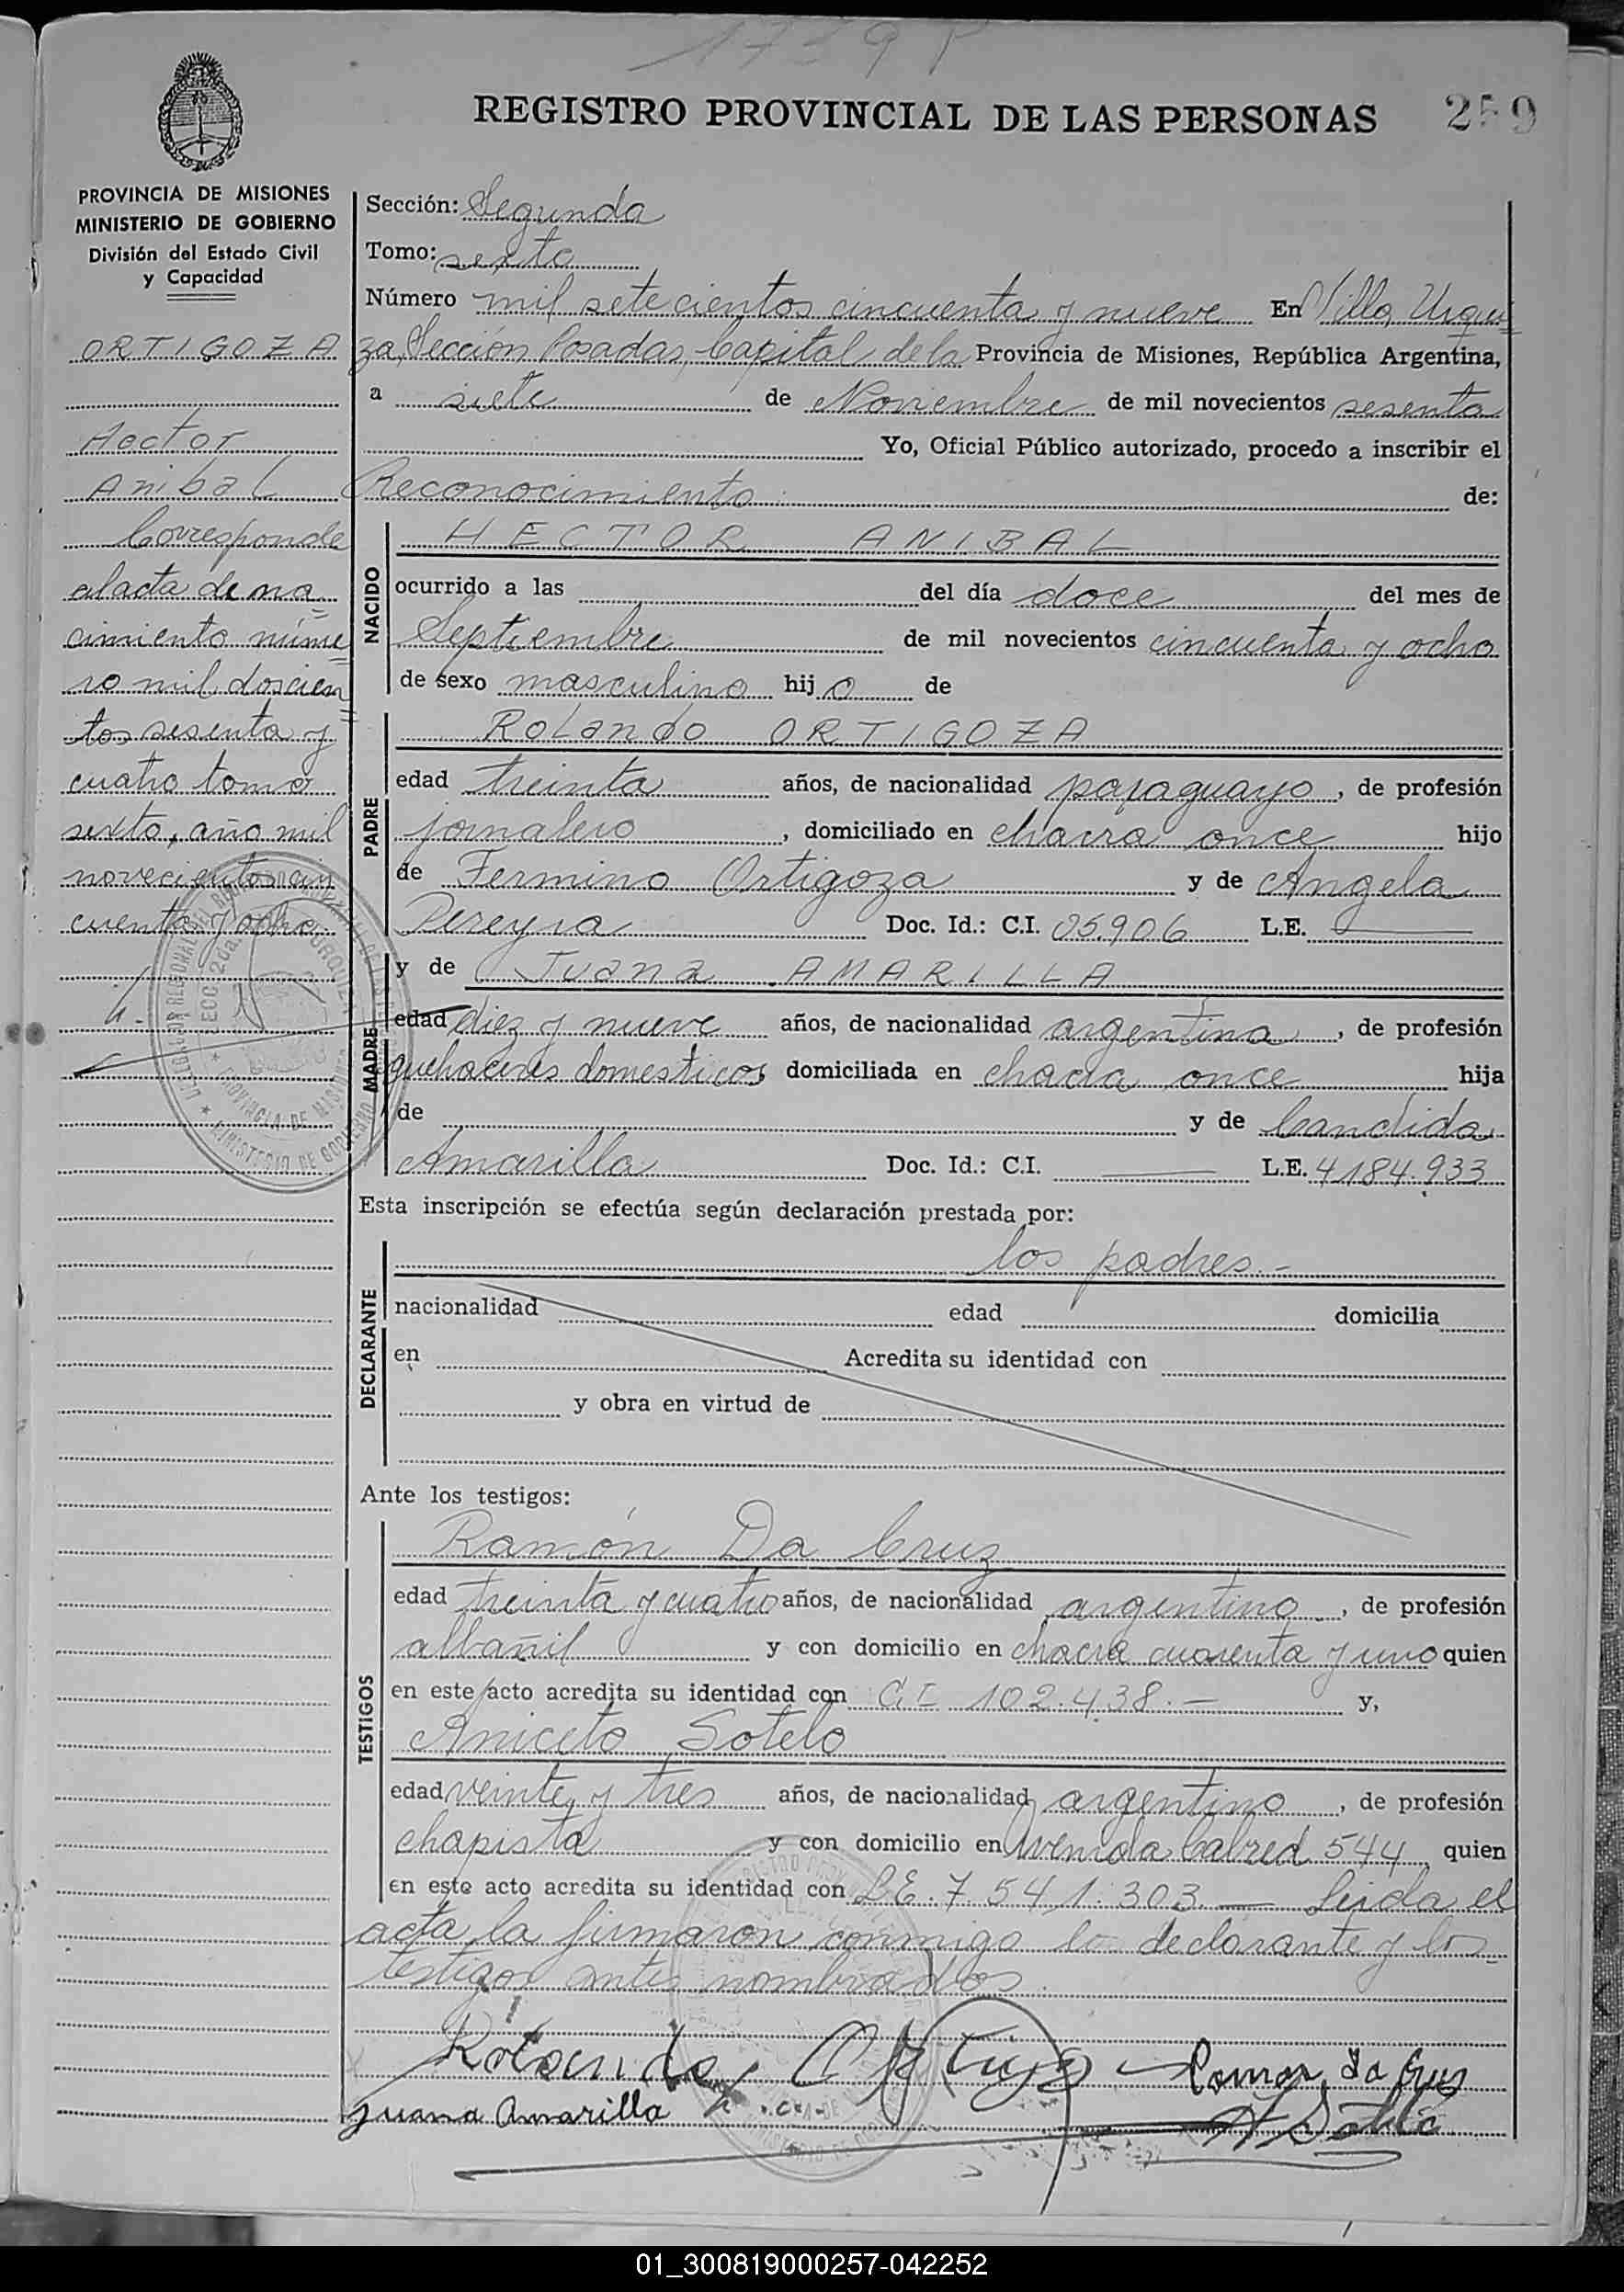 REGISTRO PROVINCIAL DE LAS PERSONAS
PROVINCIA DE MISIONES
MINISTERIO DE GOBIERNO
División del Estado Civil
y Capacidad
ORTIGOZA
Hector
Anibal
Corresponde
al acta de na
cimiento núme
ro mil doscien
tos sesenta y
cuatro tomo
sexto, año mil
novecientos cin
cuenta y ocho
Sección: Segunda
Tomo: sexto
Número mil setecientos cincuenta y nueve En Villa Urqui
za, Sección Posadas, Capital de la Provincia de Misiones, República Argentina,
a siete de Noviembre de mil novecientos sesenta
Yo, Oficial Público autorizado, procedo a inscribir el
Reconocimiento de:
NACIDO
HECTOR ANIBAL
ocurrido a las del día doce del mes de
Septiembre de mil novecientos cincuenta y ocho
de sexo masculino hijo de
PADRE
Rolando ORTIGOZA
edad treinta años, de nacionalidad paraguayo, de profesión
jornalero, domiciliado en chacra once hijo
de Fermino Ortigoza y de Angela
Pereyra Doc. Id.: C.I. 05.906 L.E.
MADRE
y de Juana AMARILLA
edad diez y nueve años, de nacionalidad argentina, de profesión
quehaceres domesticos domiciliada en chacra once hija
de y de Candida
Amarilla Doc. Id.: C.I. L.E. 4184.933
Esta inscripción se efectúa según declaración prestada por:
DECLARANTE
los padres.-
nacionalidad edad domicilia
en Acredita su identidad con
y obra en virtud de
Ante los testigos:
TESTIGOS
Ramón Da Cruz
edad treinta y cuatro años, de nacionalidad argentino, de profesión
albañil y con domicilio en chacra cuarenta y uno quien
en este acto acredita su identidad con C.I 102.438.- y,
Aniceto Sotelo
edad veinte y tres años, de nacionalidad argentino, de profesión
chapista y con domicilio en Avenida Cabred 544, quien
en este acto acredita su identidad con L.E. 7.541.303.— Leida el
acta la firmaron conmigo lo declarante y los
testigos antes nombrados.
Rolando Ortigoza
Ramon Da Cruz
Juana Amarilla
A Sotelo
01_300819000257-042252